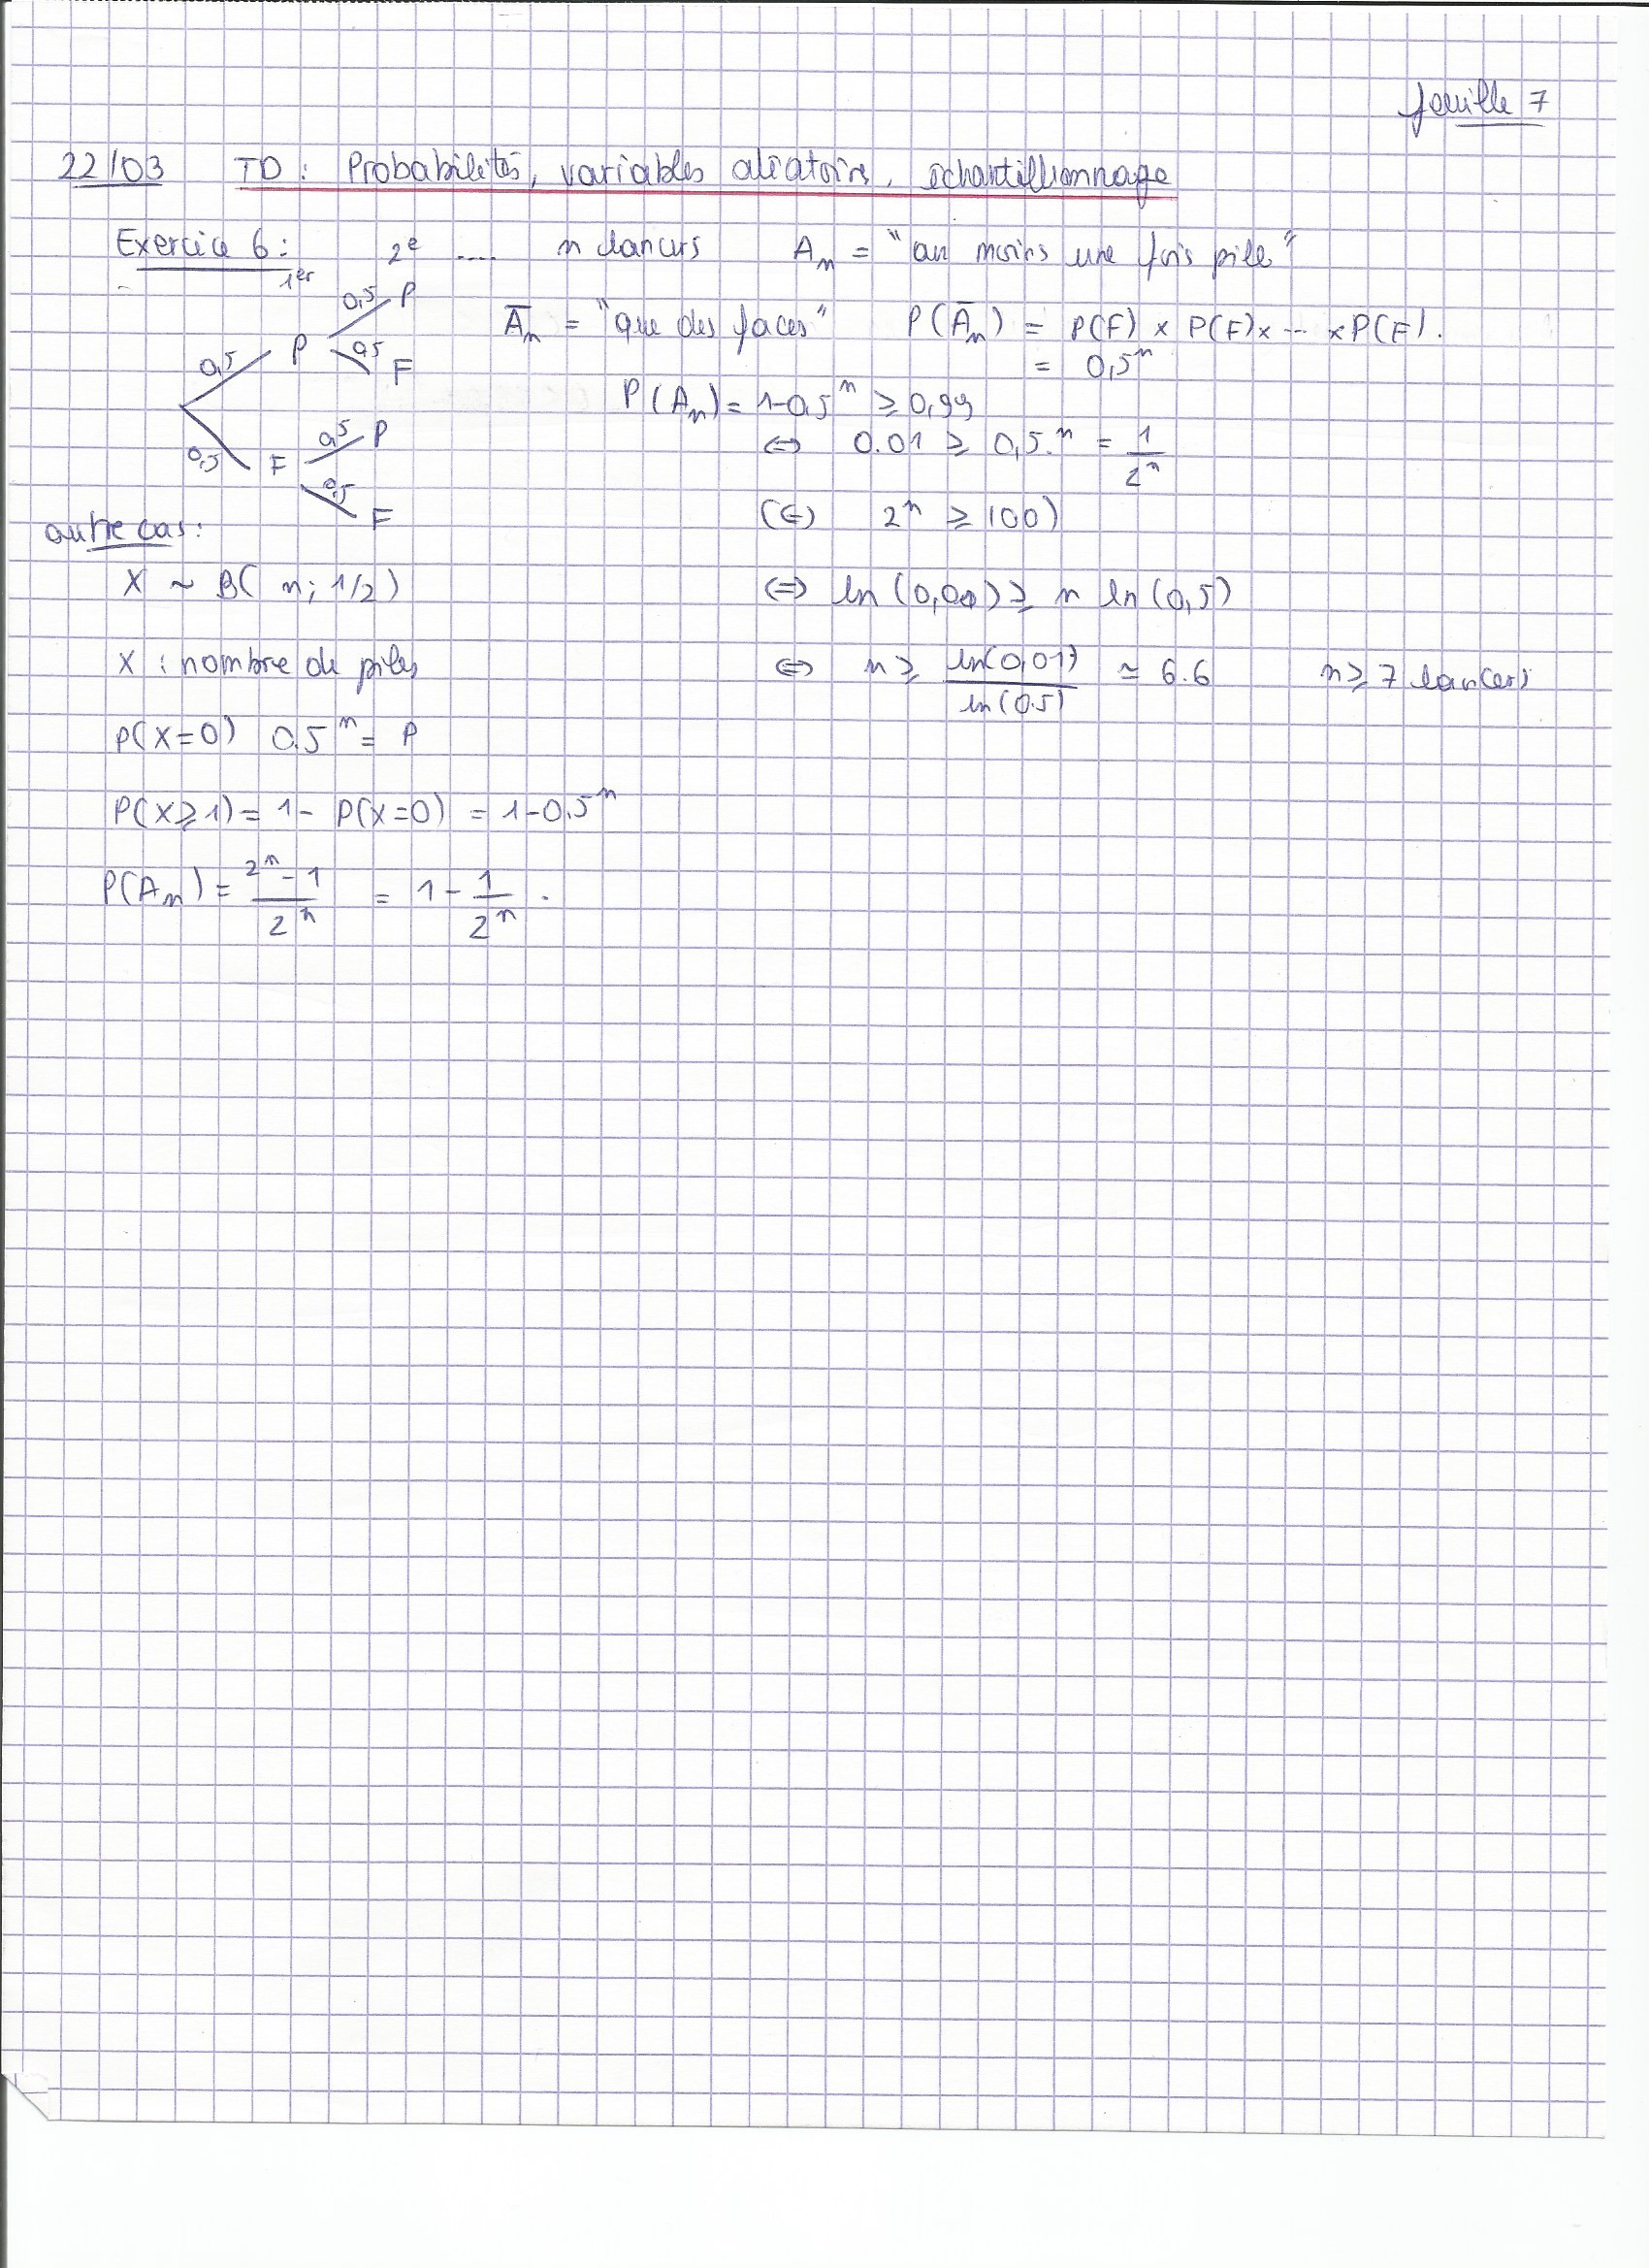 feuille 7
22/03 TD : Probabilités, variables aléatoire, échantillionnage
Exercice 6 : 1er 2e .... n lancers An = "au moins une fois pile"
0,5 P 0,5 P
0,5 F
0,5 F 0,5 P
0,5 F
A̅n = "que des faces" P(A̅n) = P(F) × P(F) × ... × P(F).
= 0,5^n
P(An) = 1-0,5^n ≥ 0,99
⇔ 0.01 ≥ 0,5^n = 1/2^n
(⇔ 2^n ≥ 100)
⇔ ln(0,01) ≥ n ln(0,5)
⇔ n ≥ ln(0,01)/ln(0.5) ≃ 6.6 n ≥ 7 lancers
autre cas :
X ~ B( n; 1/2)
X : nombre de piles
P(X=0) 0.5^n = P
P(X≥1) = 1 - P(X=0) = 1-0.5^n
P(An) = 2^n - 1/2^n = 1 - 1/2^n .